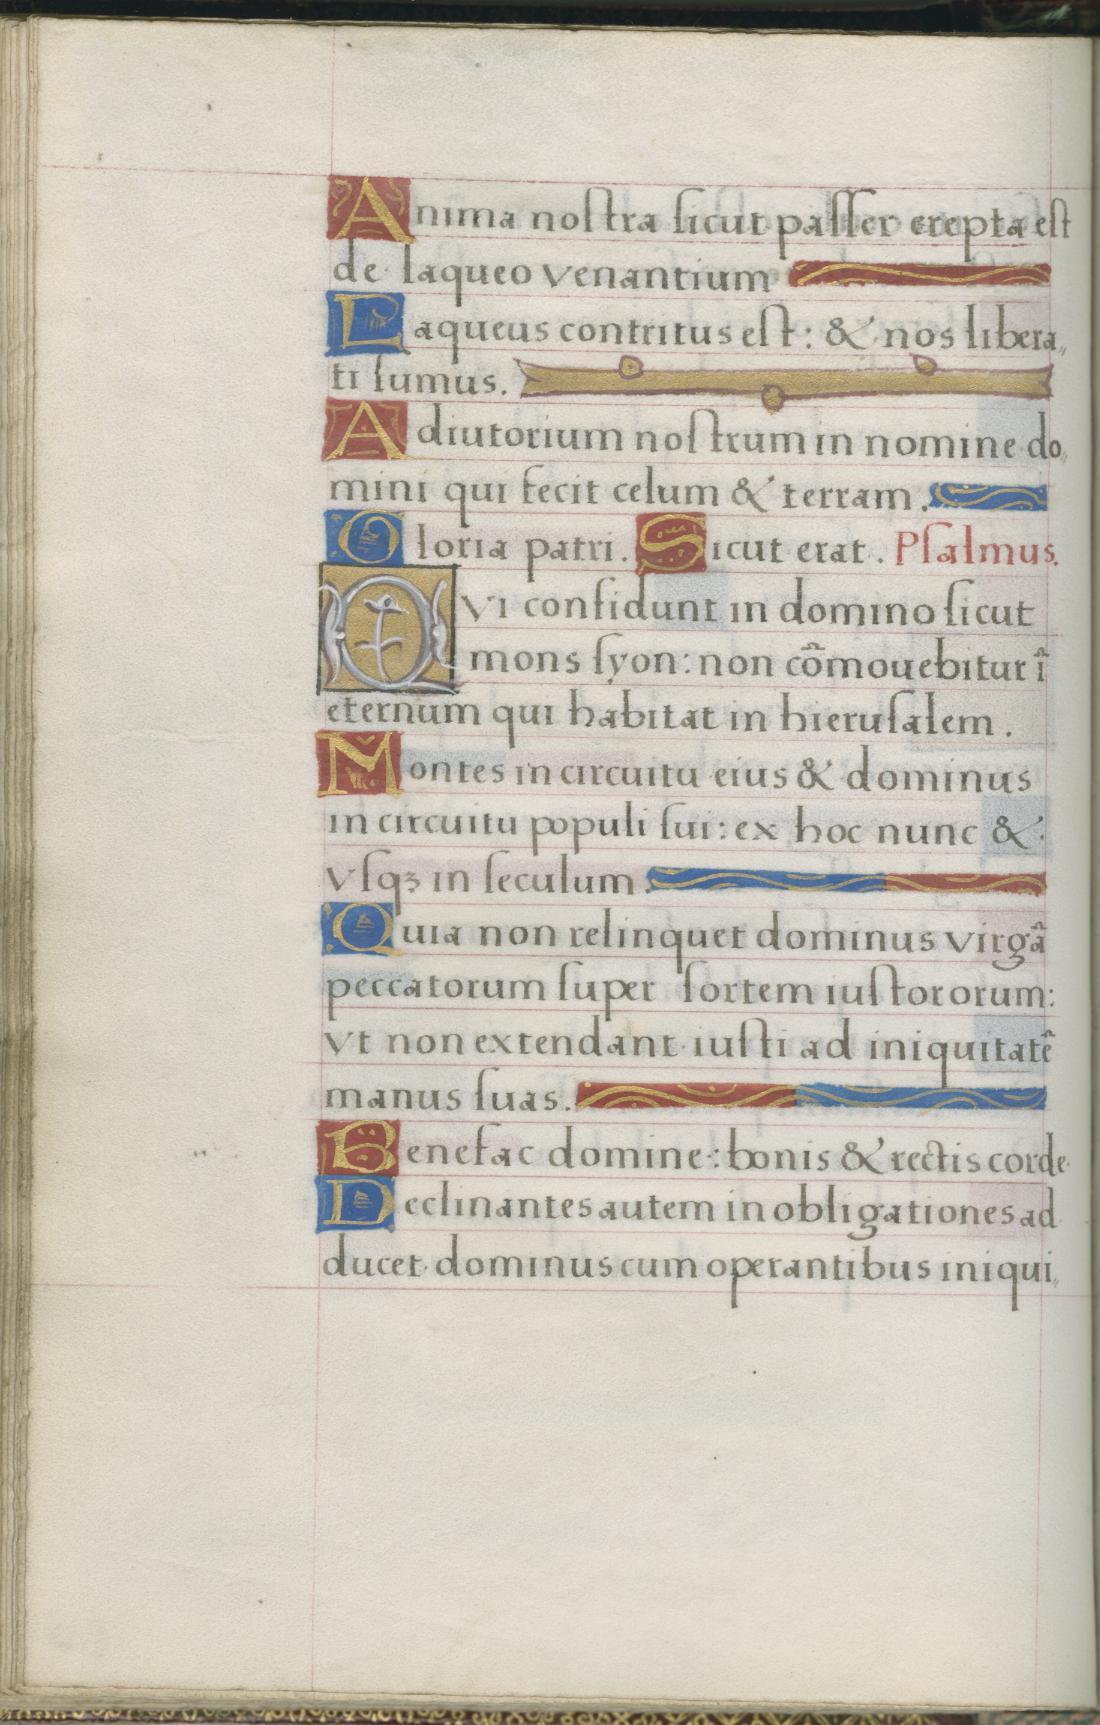 Anima noſtra ſicut paſſer erepta eſt
de laqueo venantium
Laqueus contritus eſt: & nos libera„
ti ſumus.
Adiutorium noſtrum in nomine do„
mini qui fecit celum & terram.
Gloria patri. Sicut erat. Pſalmus.
QVI confidunt in domino ſicut
mons ſyon: non cõmouebitur ĩ
eternum qui habitat in hieruſalem.
Montes in circuitu eius & dominus
in circuitu populi ſui: ex hoc nunc &
vſqꝫ in ſeculum.
Quia non relinquet dominus virgã
peccatorum ſuper ſortem iuſtororum:
vt non extendant iuſti ad iniquitatẽ
manus ſuas.
Benefac domine: bonis & rectis corde
Declinantes autem in obligationes ad
ducet dominus cum operantibus iniqui„